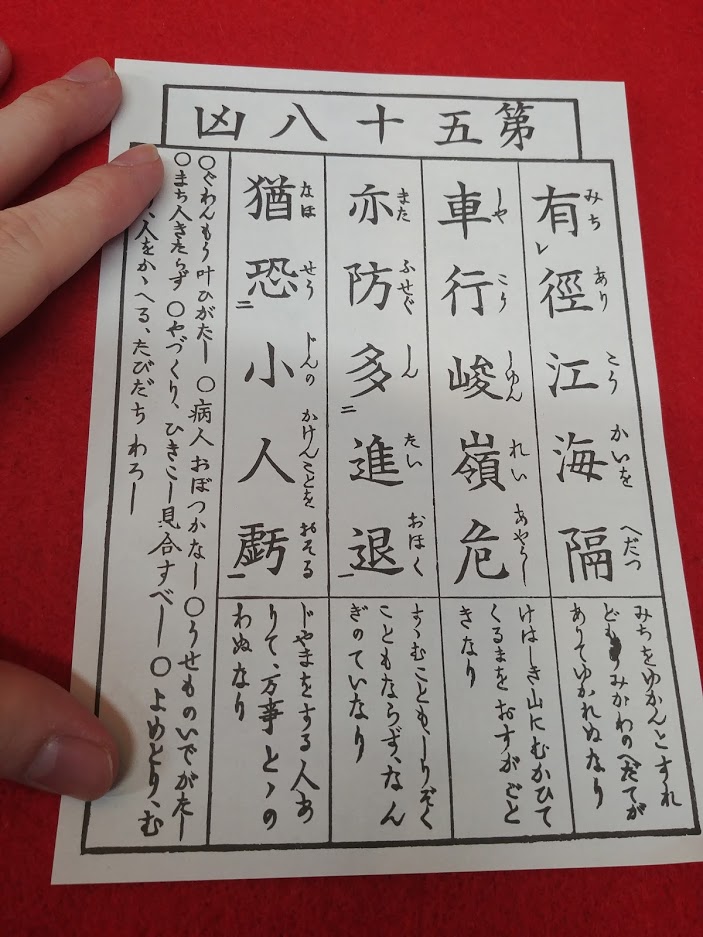 第五十八凶
有徑江海隔
みち あり こう かいを へだつ
みちをゆかんとすれ
どもうみかわのへだてが
ありてゆかれぬなり
車行峻嶺危
しや こう しゆん れい あやうし
けはしき山にむかひて
くるまをおすがごと
きなり
亦防多進退
また ふせぐ しん たい おほく
すゝむこともしりぞく
こともならず、なん
ぎのていなり
猶恐小人虧
なほ せう じんの かけんことを おそる
じやまをする人あ
りて、万事とゝの
わぬなり
○ぐわんもう叶ひがたし ○病人おぼつかなし ○うせものいでがたし
○まち人きたらず ○やづくり、ひきこし見合すべし ○よめとり、む
り、人をかゝへる、たびだちわろし